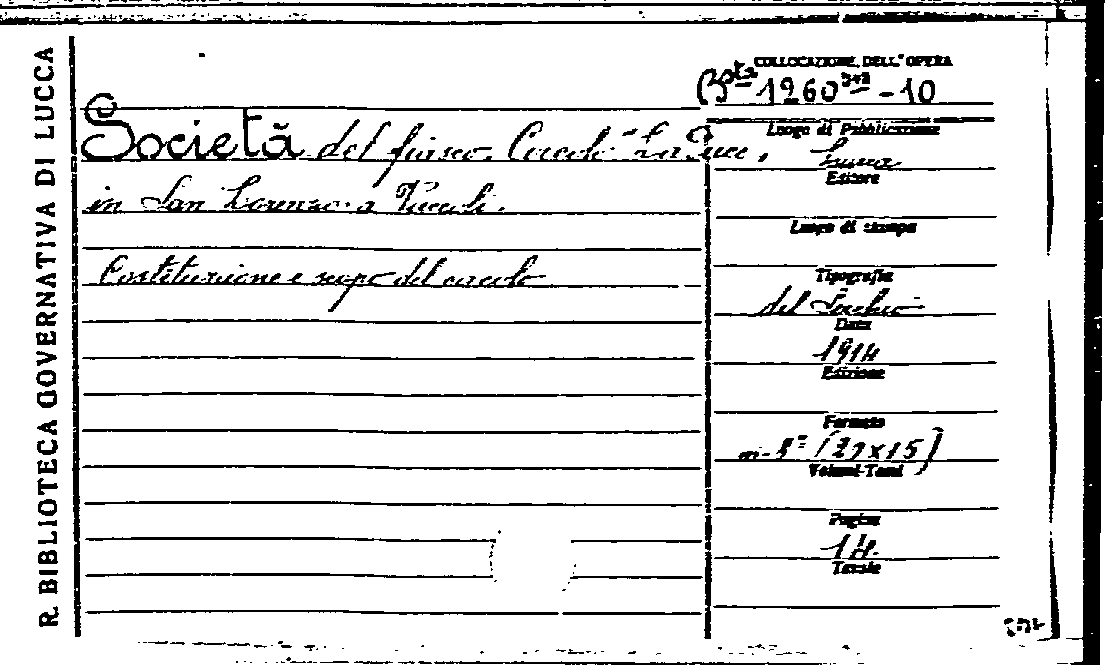 R. BIBLIOTECA GOVERNATIVA DI LUCCA
COLLOCAZIONE DELL'OPERA
Bta 1260 - 10
Società del fiasco. Circolo "La Pace,
in San Lorenzo a Vaccoli.
Costituzione e scopo del circolo
Luogo di Pubblicazione
Lucca
Editore
Luogo di stampa
Tipografia
del Serchio
Data
1914
Edizione
Formato
in-8° (21x15)
Volumi-Tomi
Pagine
14.
Tavole